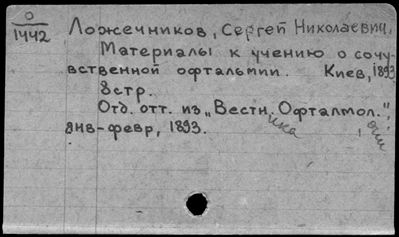 О
1442
Ложечников, Сергей Николаевич.
Материалы к учению о сочу-
вственной офтальмии. Киев, 1893
8стр.
Отд. отт. из „Вестн. Офталмол.",
янв-февр, 1893.
ика